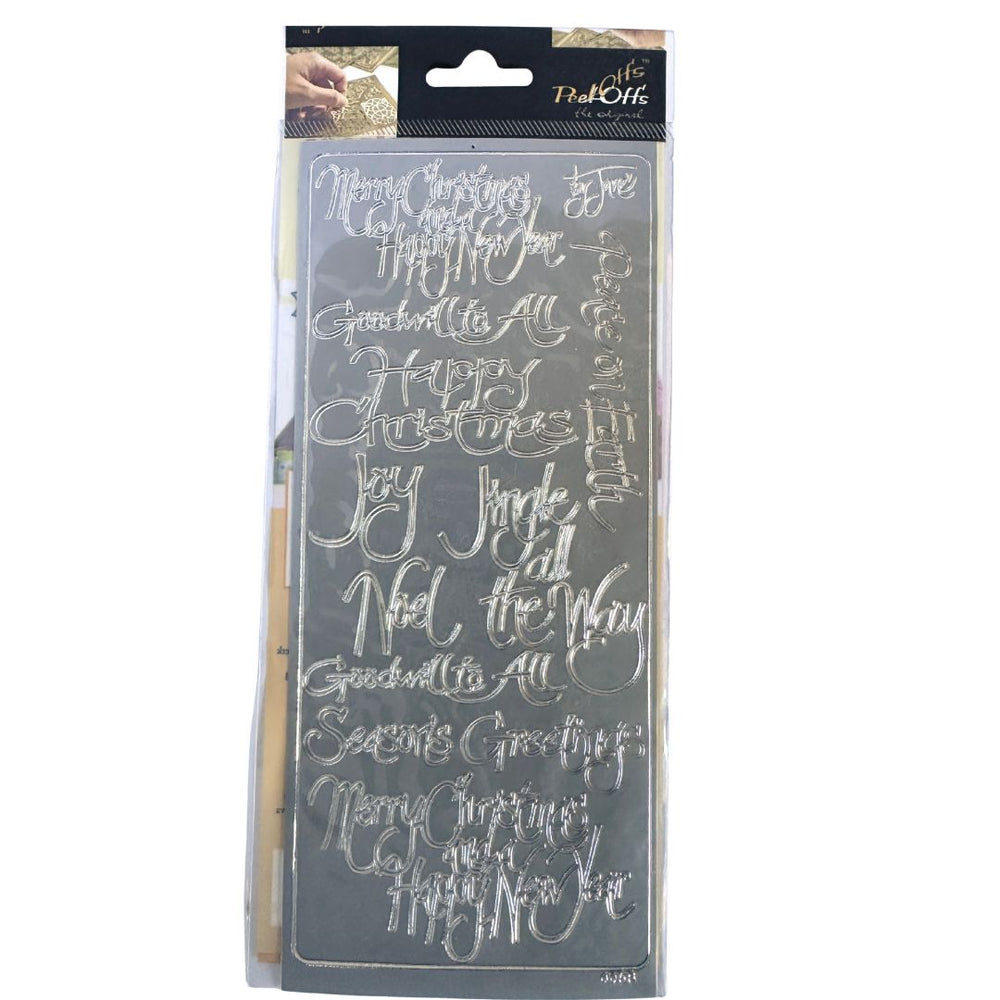 Peel-Off's™
the original
Merry Christmas
and a
Happy New Year
by Jane
Peace on Earth
Goodwill to All
Happy
Christmas
Joy
Jingle
all
the Way
Noel
Goodwill to All
Season's Greetings
Merry Christmas
and a
Happy New Year